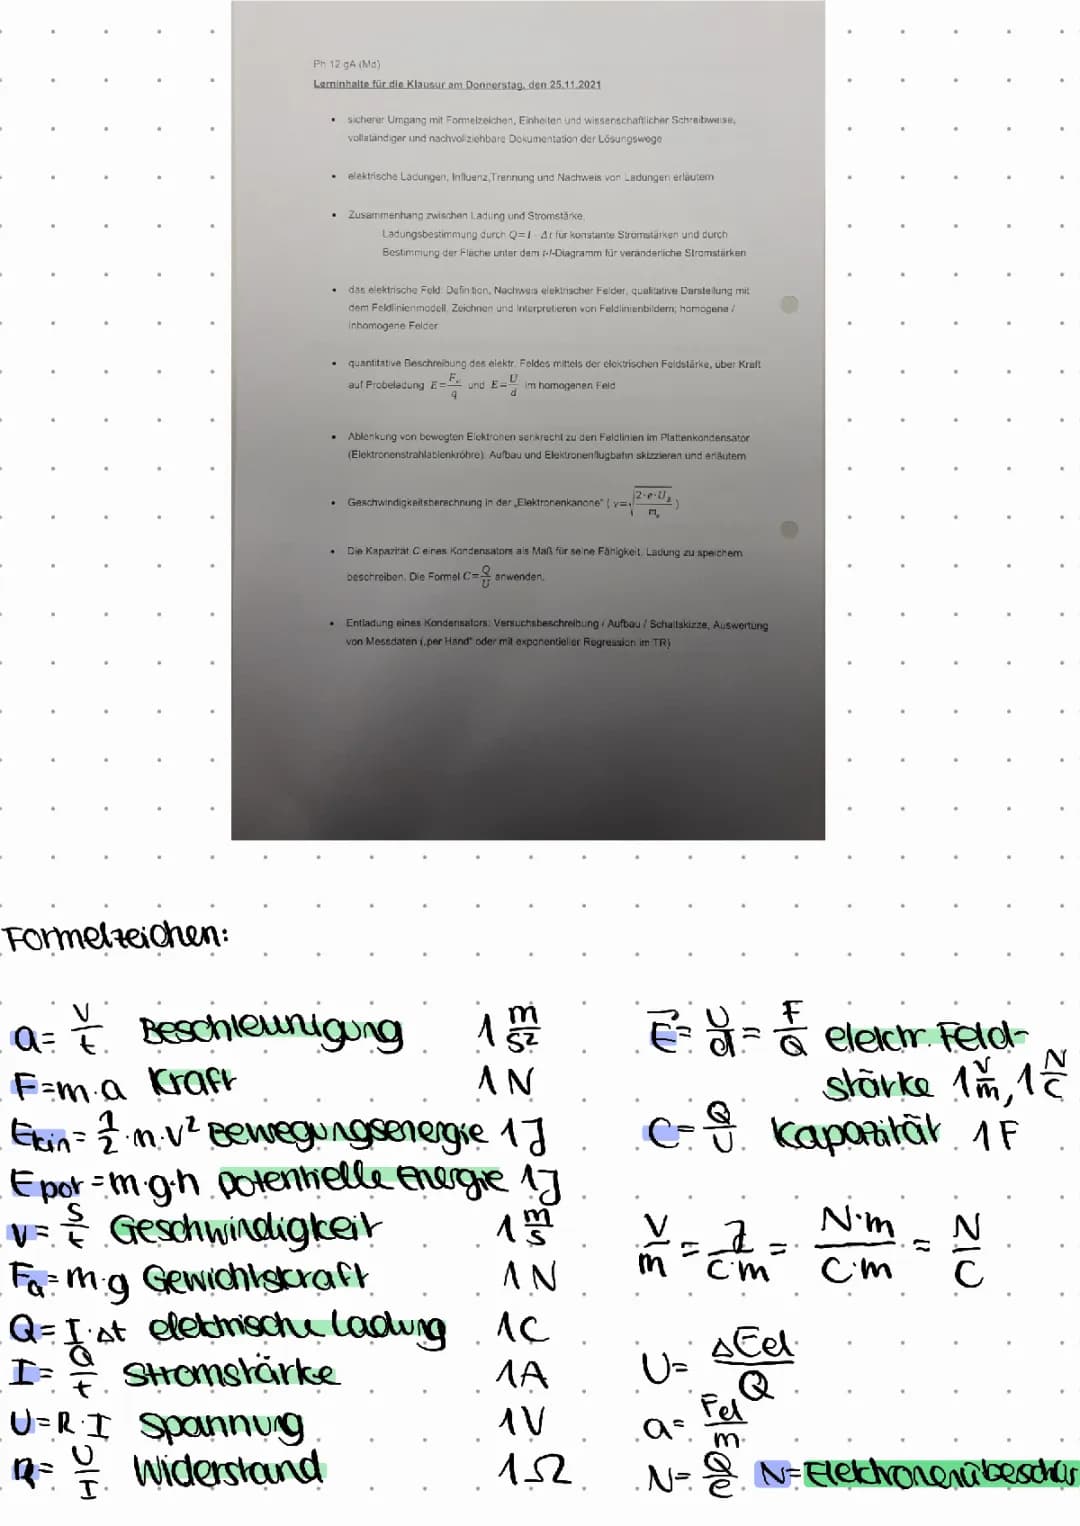 Ph 12 gA (Md)
Lerninhalte für die Klausur am Donnerstag, den 25.11.2021
• sicherer Umgang mit Formelzeichen, Einheiten und wissenschaftlicher Schreibweise,
vollständiger und nachvollziehbare Dokumentation der Lösungswege
• elektrische Ladungen, Influenz,Trennung und Nachweis von Ladungen erläutern
• Zusammenhang zwischen Ladung und Stromstärke,
Ladungsbestimmung durch Q=I · Δt für konstante Stromstärken und durch
Bestimmung der Fläche unter dem t-I-Diagramm für veränderliche Stromstärken
• das elektrische Feld: Definition, Nachweis elektrischer Felder, qualitative Darstellung mit
dem Feldlinienmodell, Zeichnen und Interpretieren von Feldlinienbildern; homogene /
inhomogene Felder
• quantitative Beschreibung des elektr. Feldes mittels der elektrischen Feldstärke, über Kraft
auf Probeladung E=F_e/q und E=U/d im homogenen Feld
• Ablenkung von bewegten Elektronen senkrecht zu den Feldlinien im Plattenkondensator
(Elektronenstrahlablenkröhre): Aufbau und Elektronenflugbahn skizzieren und erläutern
• Geschwindigkeitsberechnung in der „Elektronenkanone" ( v=√(2·e·U_B/m_e) )
• Die Kapazität C eines Kondensators als Maß für seine Fähigkeit, Ladung zu speichern
beschreiben. Die Formel C=Q/U anwenden.
• Entladung eines Kondensators: Versuchsbeschreibung / Aufbau / Schaltskizze, Auswertung
von Messdaten („per Hand" oder mit exponentieller Regression im TR)
Formelzeichen:
a= v/t Beschleunigung 1 m/s²
F=m·a Kraft 1N
Ekin= 1/2·m·v² Bewegungsenergie 1J
Epot=m·g·h potentielle Energie 1J
v= s/t Geschwindigkeit 1 m/s
FG=m·g Gewichtskraft 1N
Q=I·Δt elektrische Ladung 1C
I= Q/t Stromstärke 1A
U=R·I Spannung 1V
R= U/I Widerstand 1Ω
E= U/d = F/Q elektr. Feld-
stärke 1 V/m, 1 N/C
C= Q/U Kapazität 1F
V/m = J/C·m = N·m/C·m = N/C
U= ΔEel/Q
a= Fel/m
N= Q/e N=Elektronenübeschüs